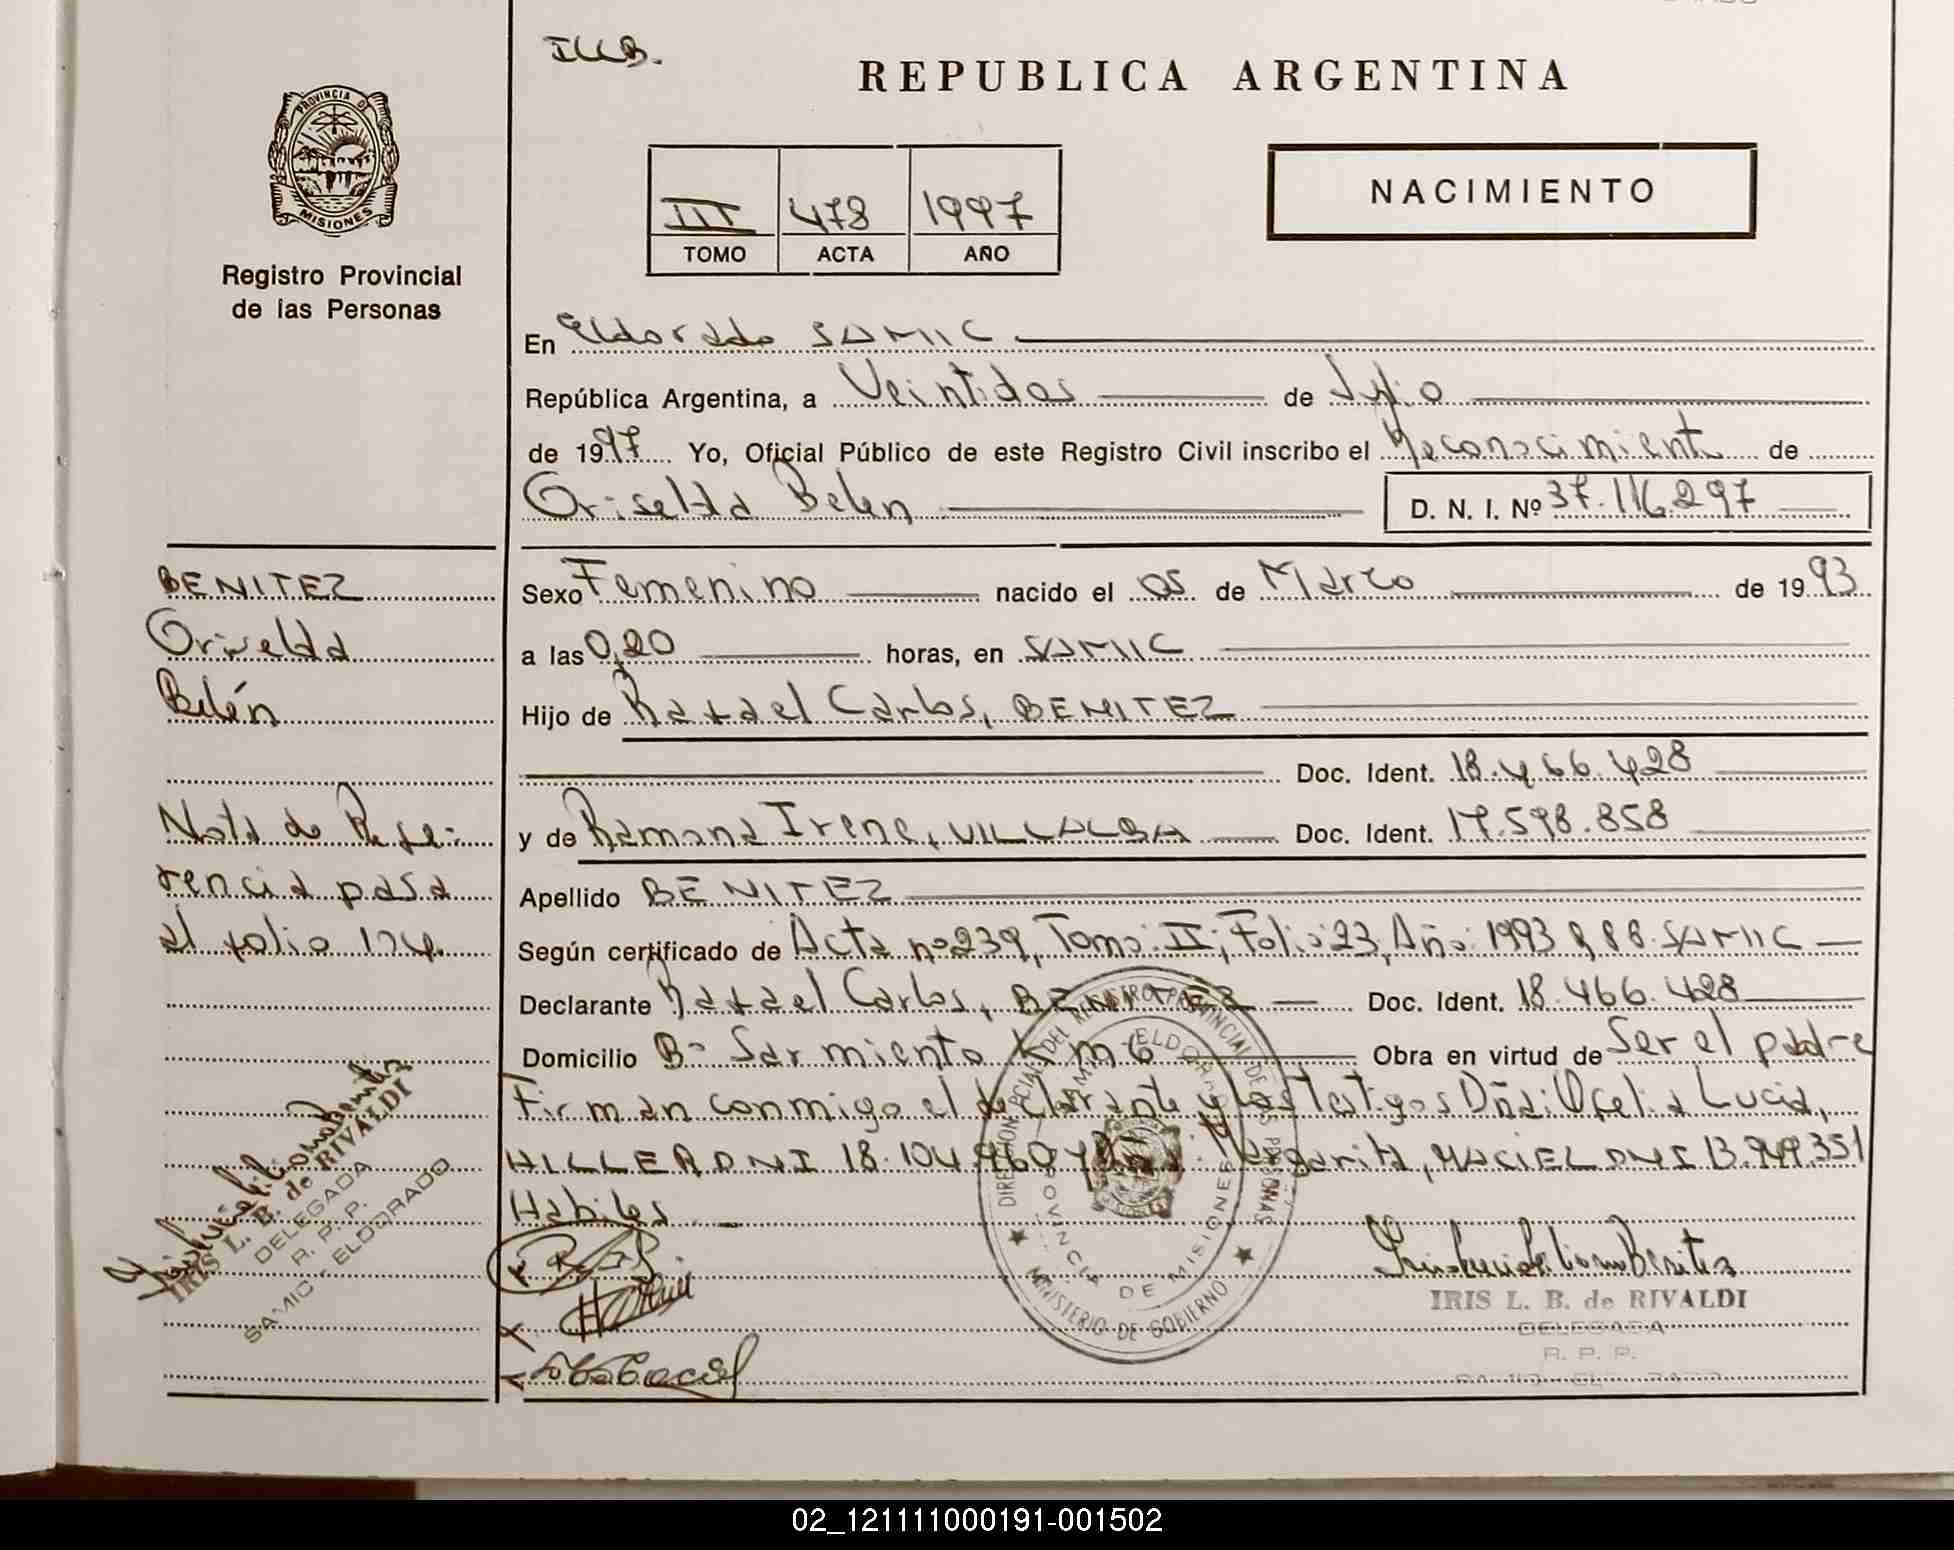 ILLB.
REPUBLICA ARGENTINA
PROVINCIA DE
MISIONES
Registro Provincial
de las Personas
III 478 1997
TOMO ACTA AÑO
NACIMIENTO
En Eldorado SAMIC
República Argentina, a Veintidos de Julio
de 1997 Yo, Oficial Público de este Registro Civil inscribo el Reconocimiento de
Griselda Belen D. N. I. Nº 37.116.297
BENITEZ
Griselda
Belén
Nota de Refe-
rencia pasa
al folio 124.
Sexo Femenino nacido el 05 de Marzo de 1993
a las 0,20 horas, en SAMIC
Hijo de Rafael Carlos, BENITEZ
Doc. Ident. 18.466.428
y de Ramona Irene, VILLALBA Doc. Ident. 17.598.858
Apellido BENITEZ
Según certificado de Acta nº 239, Tomo: II; Folio: 23, Año: 1993 SAMIC
Declarante Rafael Carlos, BENITEZ Doc. Ident. 18.466.428
Domicilio Bº Sarmiento Km 6 Obra en virtud de Ser el padre
Firman conmigo el declarante y los Testigos Dña: Ofelia Lucia,
HILLER DNI 18.104.960 y Dña: Margarita, MACIEL DNI 13.949.351
Habiles
DIRECCION PCIAL DEL REGISTRO PROVINCIAL DE LAS PERSONAS
SAMIC ELDORADO
PROVINCIA DE MISIONES
MINISTERIO DE GOBIERNO
IRIS L. B. de RIVALDI
DELEGADA
R. P. P.
SAMIC - ELDORADO
IRIS L. B. de RIVALDI
DELEGADA
R. P. P.
02_121111000191-001502